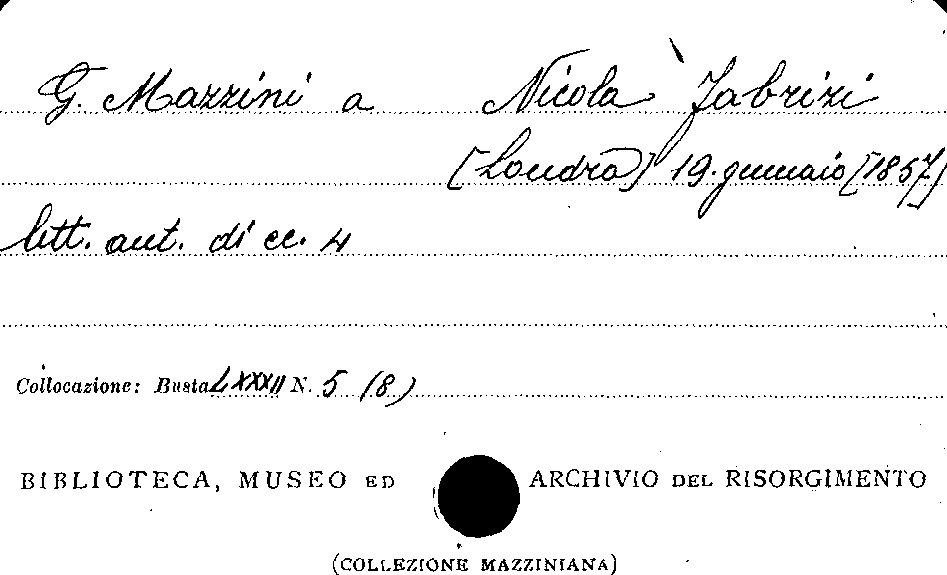 G. Mazzini a Nicola Fabrizi
[Londra] 19. gennaio [1857]
lett. aut. di cc. 4
Collocazione: Busta LXXXII N. 5 (8)
BIBLIOTECA, MUSEO ED ARCHIVIO DEL RISORGIMENTO
(COLLEZIONE MAZZINIANA)